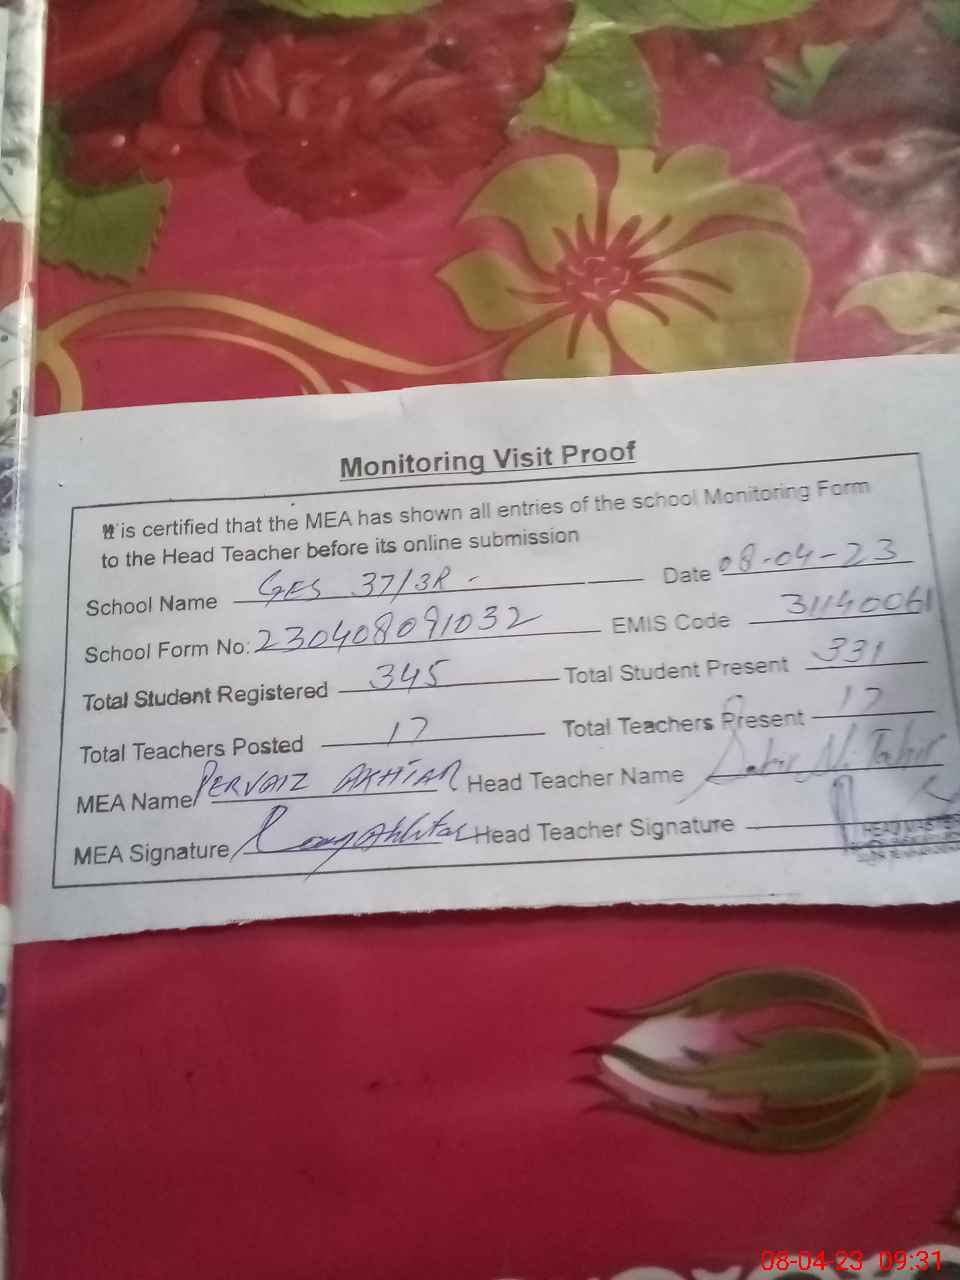 Monitoring Visit Proof
It is certified that the MEA has shown all entries of the school Monitoring Form
to the Head Teacher before its online submission
School Name GES 37/3R - Date 08-04-23
School Form No: 230408091032 EMIS Code 31140061
Total Student Registered 345 Total Student Present 331
Total Teachers Posted 17 Total Teachers Present 17
MEA Name PERVAIZ AKHTAR Head Teacher Name
MEA Signature Head Teacher Signature
HEAD MASTER
08-04-23 09:31